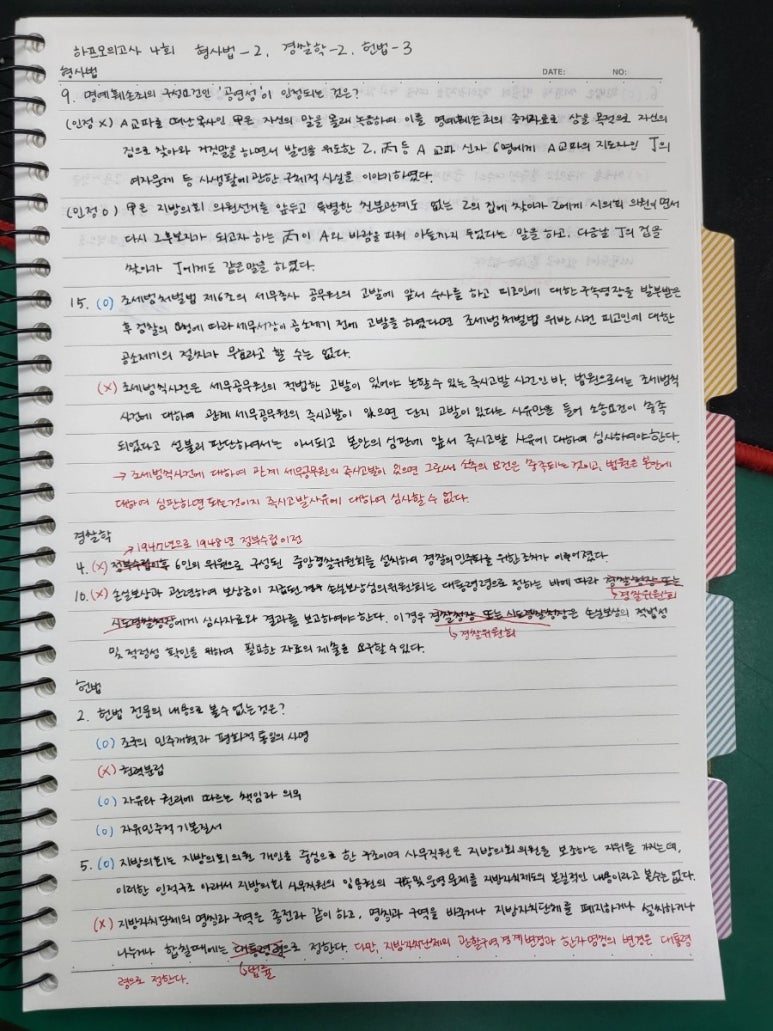 하프모의고사 4회 형사법-2, 경찰학-2, 헌법-3
형사법
DATE: NO:
9. 명예훼손죄의 구성요건인 '공연성'이 인정되는 것은?
(인정 X) A교파를 떠난 목사인 甲은 자신의 말을 몰래 녹음하여 이를 명예훼손죄의 증거자료로 삼을 목적으로 자신의
집으로 찾아와 거짓말을 하면서 발언을 유도한 乙, 丙 등 A 교파 신자 6명에게 A교파의 지도자인 丁의
여자문제 등 사생활에 관한 구체적 사실을 이야기하였다.
(인정 O) 甲은 지방의회 의원선거를 앞두고 특별한 친분관계도 없는 乙의 집에 찾아가 乙에게 시의회 의원이면서
다시 그 후보자가 되고자 하는 丙이 A와 바람을 피워 아들까지 두었다는 말을 하고, 다음날 丁의 집을
찾아가 丁에게도 같은 말을 하였다.
15. (O) 조세범처벌법 제6조의 세무종사 공무원의 고발에 앞서 수사를 하고 피고인에 대한 구속영장을 발부받은
후 경찰의 요청에 따라 세무서장이 공소제기 전에 고발을 하였다면 조세범처벌법 위반 사건 피고인에 대한
공소제기의 절차가 무효라고 할 수는 없다.
(X) 조세범칙사건은 세무공무원의 적법한 고발이 있어야 논할 수 있는 즉시고발 사건인 바, 법원으로서는 조세범칙
사건에 대하여 관계 세무공무원의 즉시고발이 있으면 단지 고발이 있다는 사유만을 들어 소송요건이 충족
되었다고 섣불리 판단하여서는 아니되고 본안의 심판에 앞서 즉시고발 사유에 대하여 심사하여야한다.
→ 조세범칙사건에 대하여 관계 세무공무원의 즉시고발이 있으면 그로써 소추의 요건은 충족되는 것이고, 법원은 본안에
대하여 심판하면 되는것이지 즉시고발사유에 대하여 심사할 수 없다.
경찰학
→ 1947년으로 1948년 정부수립 이전
4. (X) 정부수립이후 6인의 위원으로 구성된 중앙경찰위원회를 설치하여 경찰의 민주화를 위한 조치가 이루어졌다.
10. (X) 손실보상과 관련하여 보상금이 지급된 경우 손실보상심의위원회는 대통령령으로 정하는 바에 따라 경찰청장 또는
↳ 경찰위원회
시도경찰청장에게 심사자료와 결과를 보고하여야 한다. 이 경우 경찰청장 또는 시도경찰청장은 손실보상의 적법성
↳ 경찰위원회
및 적정성 확인을 위하여 필요한 자료의 제출을 요구할 수 있다.
헌법
2. 헌법 전문의 내용으로 볼 수 없는 것은?
(O) 조국의 민주개혁과 평화적 통일의 사명
(X) 권력분립
(O) 자유와 권리에 따르는 책임과 의무
(O) 자유민주적 기본질서
5. (O) 지방의회는 지방의회의원 개인을 중심으로 한 구조이며 사무직원은 지방의회의원을 보조하는 지위를 가지는데,
이러한 인적구조 아래서 지방의회 사무직원의 임용권의 귀속 및 운영 문제를 지방자치제도의 본질적인 내용이라고 볼수는 없다.
(X) 지방자치단체의 명칭과 구역은 종전과 같이 하고, 명칭과 구역을 바꾸거나 지방자치단체를 폐지하거나 설치하거나
나누거나 합칠때에는 대통령령으로 정한다. 다만, 지방자치단체의 관할구역 경계변경과 한자명칭의 변경은 대통령
↳ 법률
령으로 정한다.